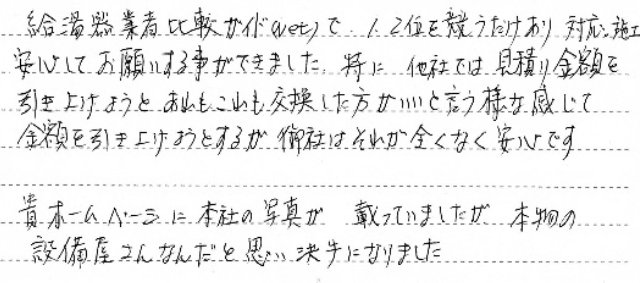 給湯器業者比較ガイド(Net)で 1、2位を競うだけあり 対応、施工
安心してお願いする事ができました。特に 他社では見積り金額を
引き上げようと あれもこれも交換した方がいいと言う様な感じで
金額を引き上げようとするが 御社はそれが全くなく安心です
貴ホームページに本社の写真が 載っていましたが 本物の
設備屋さんなんだと思い決め手になりました